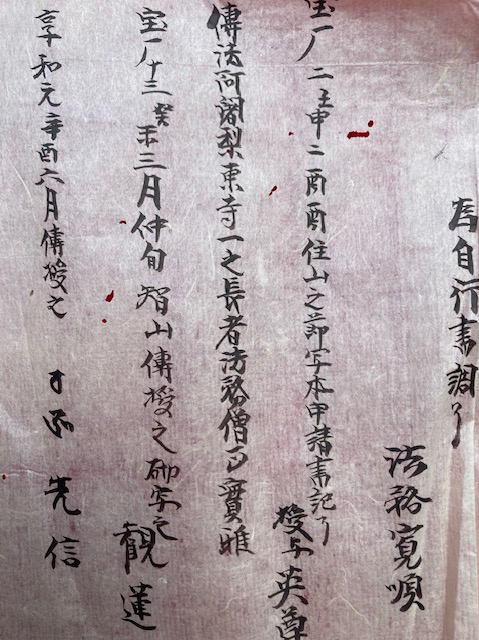 為自行書調了
法務寛順
宝一ノ二壬申二酉酉住山之節写本申請書記了
授与英尊
傳法阿闍梨東寺一之長者法務僧正寶雅
宝一ノ十三癸未三月仲旬智山傳授之砌写之
観蓮
享和元辛酉六月傳授之
先信